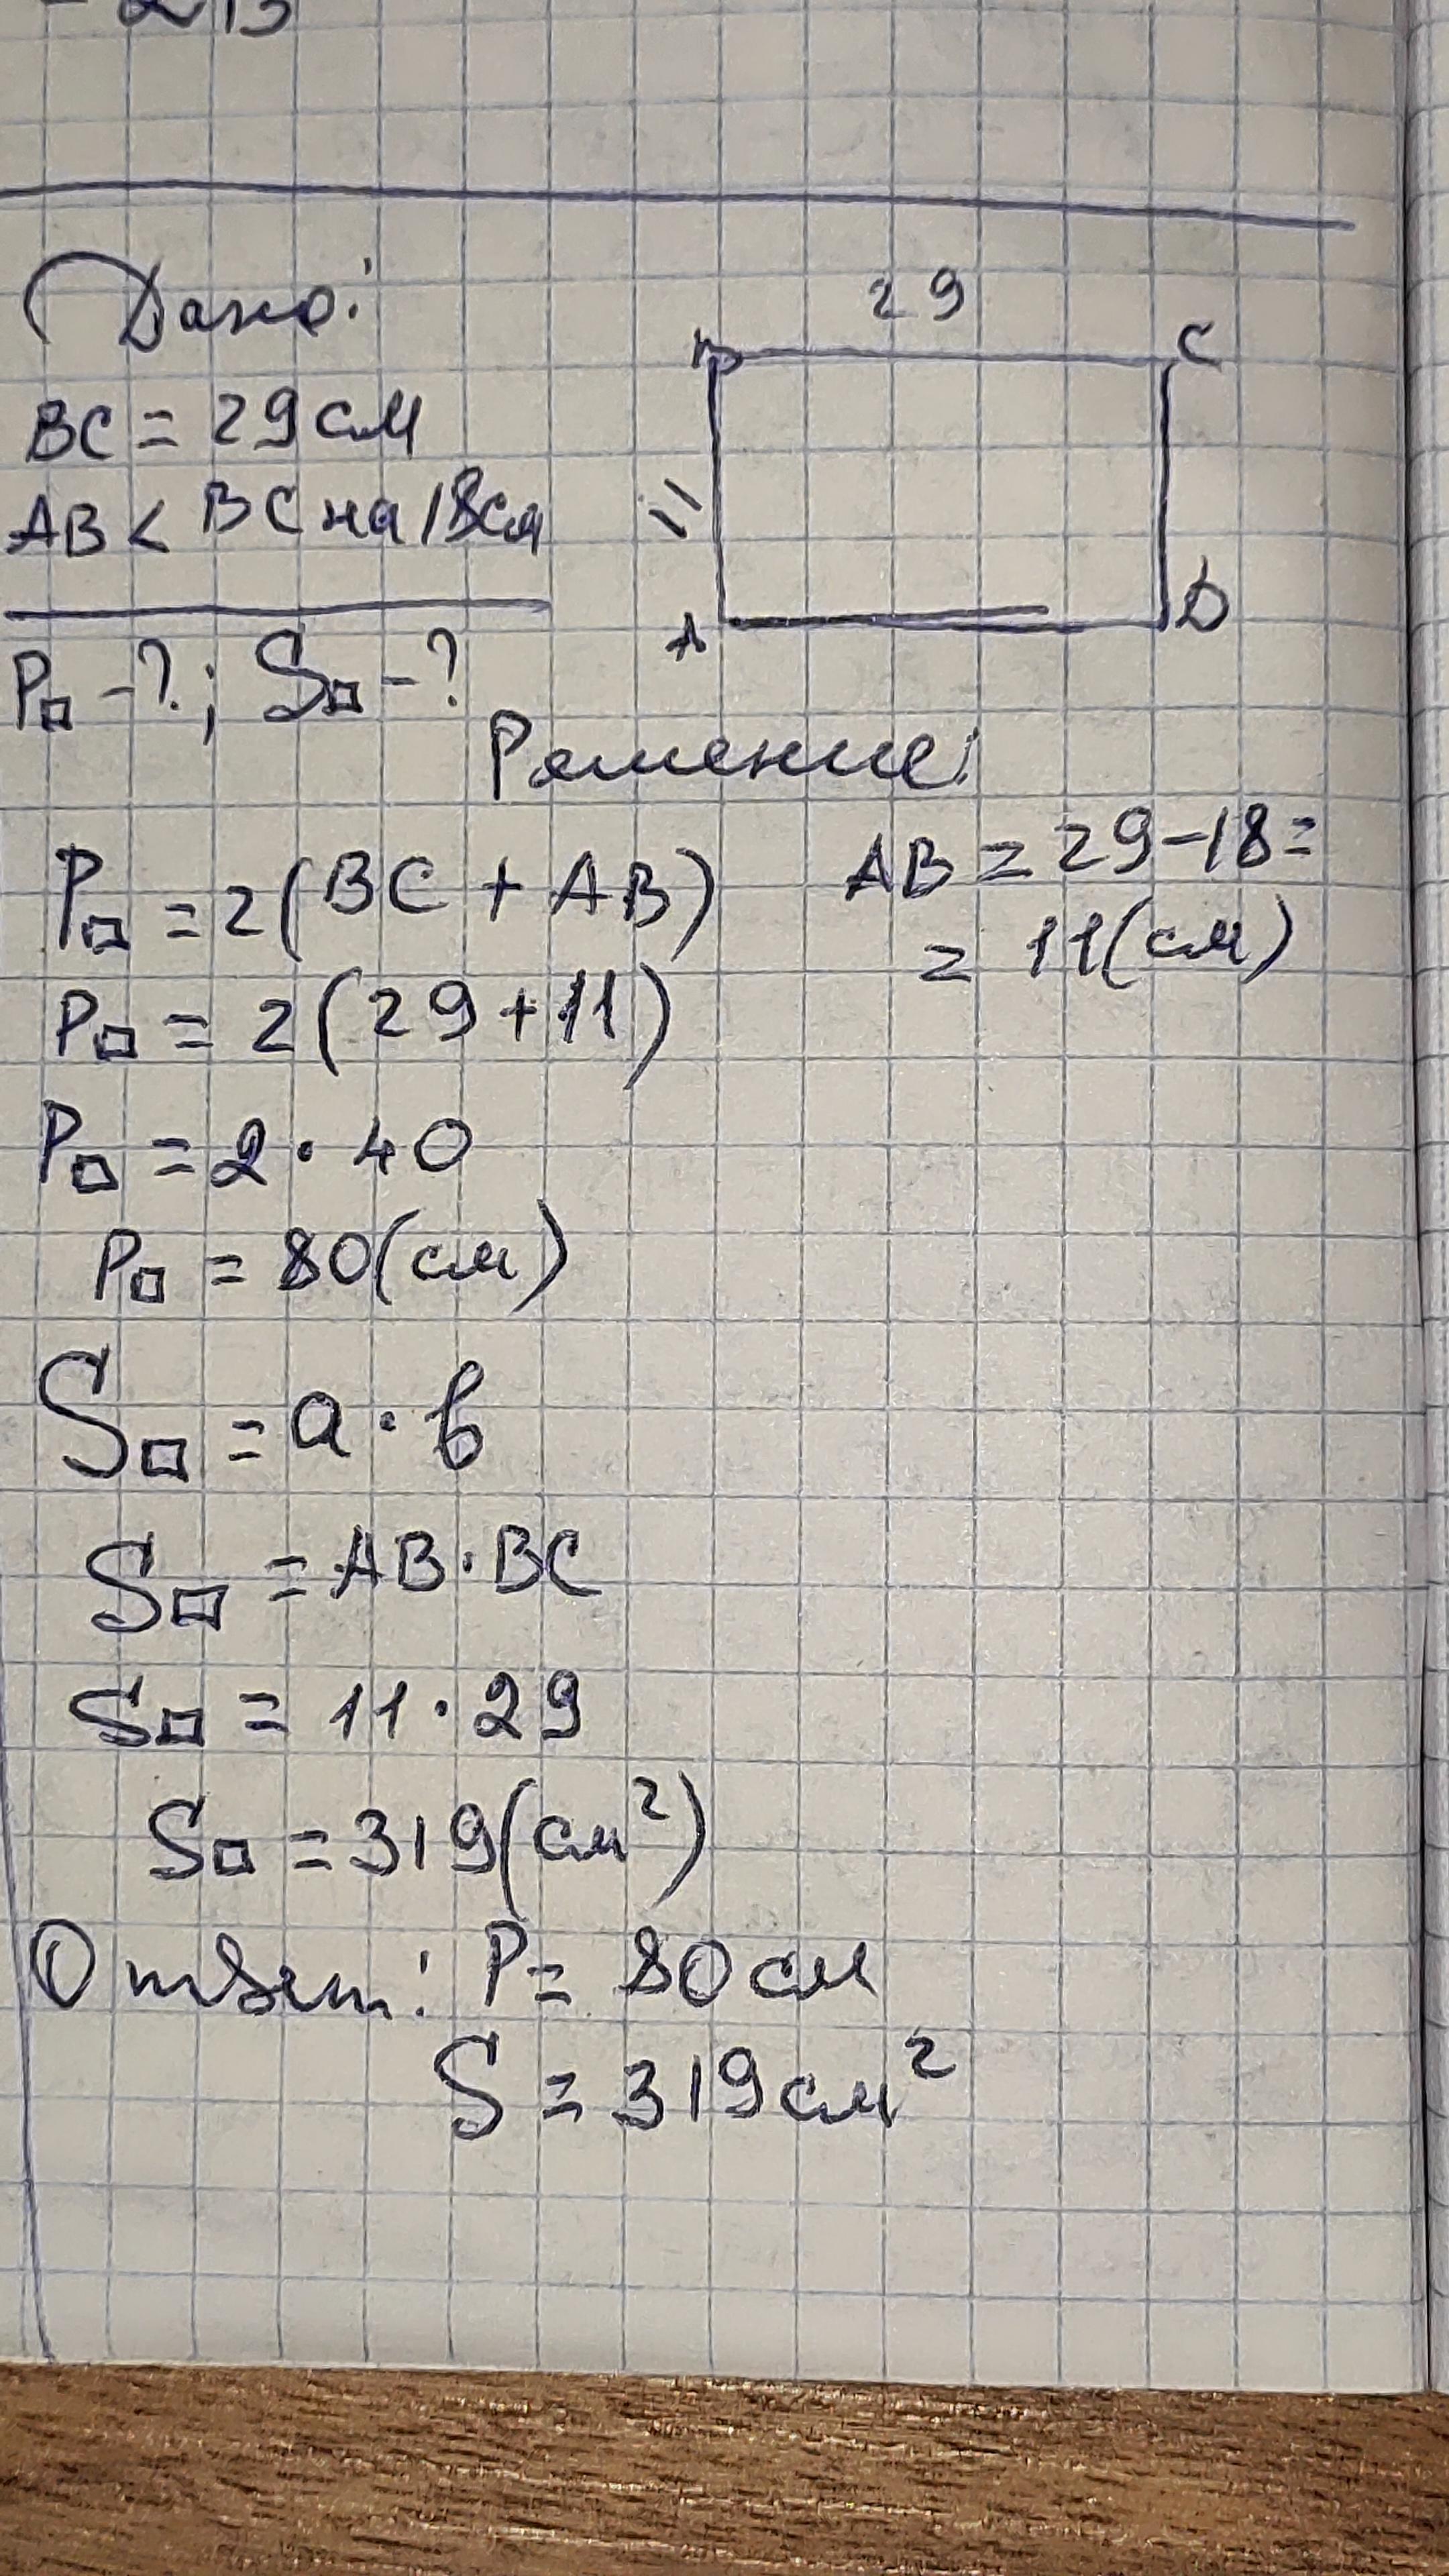 Дано:
BC = 29 см
AB < BC на 18см
P□ - ?; S□ - ?
29
B
C
11
A
D
Решение:
P□ = 2(BC + AB)
AB = 29 - 18 =
= 11(см)
P□ = 2(29 + 11)
P□ = 2 · 40
P□ = 80(см)
S□ = a · b
S□ = AB · BC
S□ = 11 · 29
S□ = 319(см²)
Ответ: P = 80 см
S = 319 см²